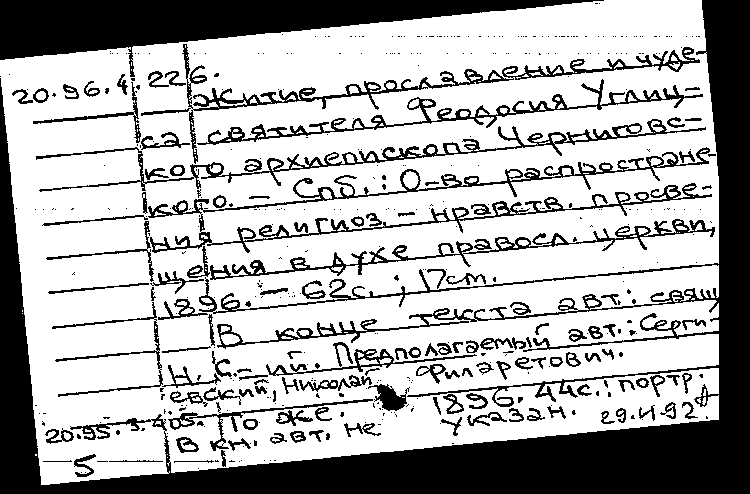 20.96.4.226.
Житие, прославление и чуде-
са святителя Феодосия Углиц-
кого, архиепископа Черниговс-
кого. – Спб.: О-во распростране-
ния религиоз.-нравств. просве-
щения в духе правосл. церкви,
1896. – 62с.; 17см.
В конце текста авт.: свящ
Н. С-ий. Предполагаемый авт.: Серги-
евский, Николай Филаретович.
20.95.3.405. То же. 1896. 44с.: портр.
В кн. авт. не указан. 29.VI.92
5